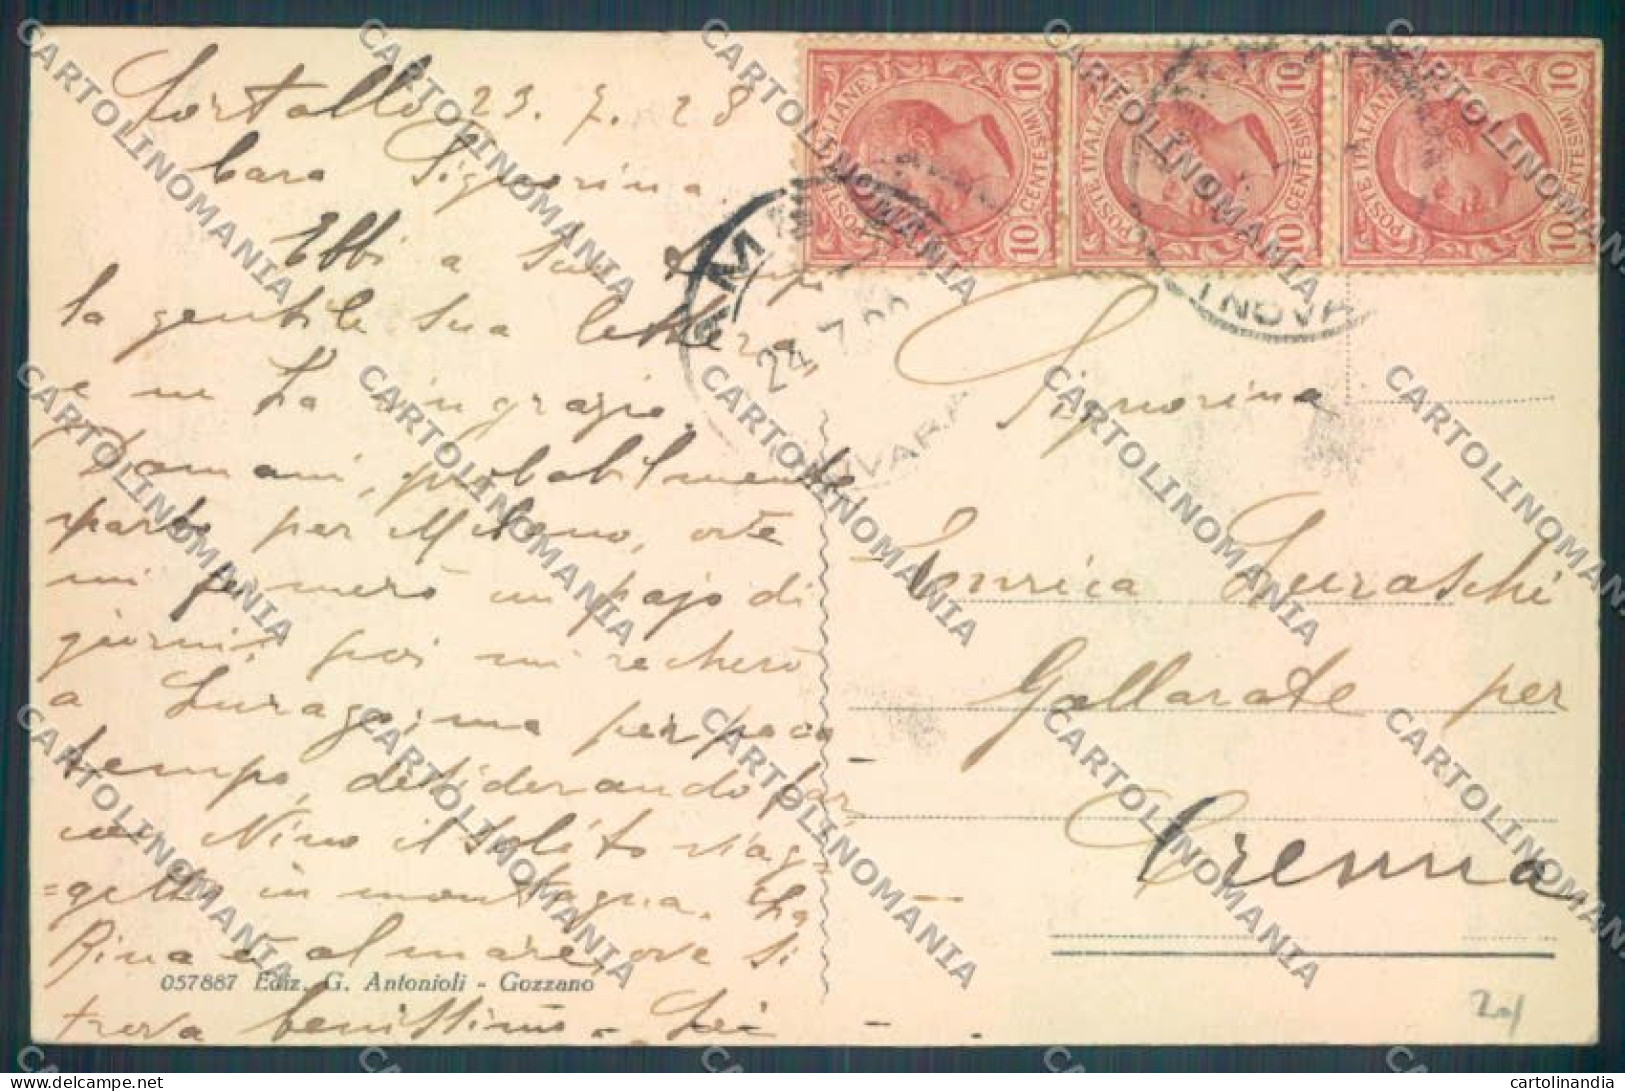 23.7.28
Cara Signorina
Ebbi a suo tempo
la gentile sua lettera
e ne La ringrazio.
Domani, probabilmente
parto per Milano, ove
mi fermerò un pajo di
giorni, poi mi recherò
a per poco
tempo, desiderando far
con Nino il solito viag=
=getto in montagna. La
Rina è al mare, ove si
trova benissimo - Lei
057887 Ediz. G. Antonioli - Gozzano
POSTE ITALIANE
10 CENTESIMI 10
POSTE ITALIANE
10 CENTESIMI 10
POSTE ITALIANE
10 CENTESIMI 10
Signorina
Enrica Luraschi
Gallarate per
Crenna
CARTOLINOMANIA
www.delcampe.net
cartolinandia